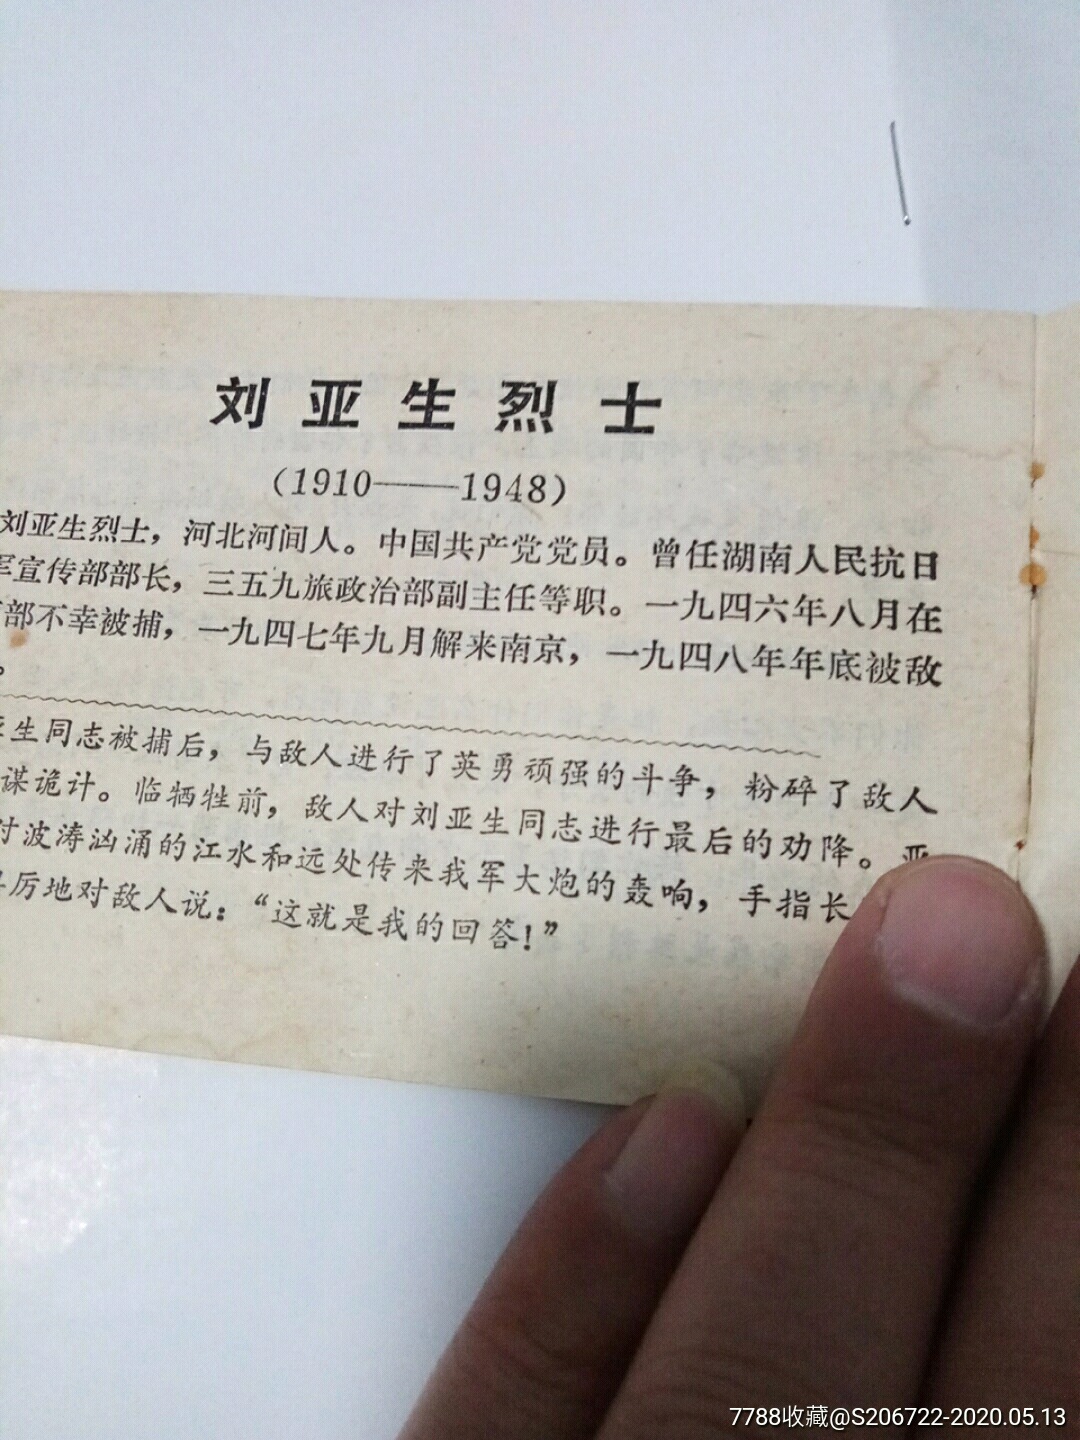 刘亚生烈士
（1910——1948）
刘亚生烈士，河北河间人。中国共产党党员。曾任湖南人民抗日
军宣传部部长，三五九旅政治部副主任等职。一九四六年八月在
部不幸被捕，一九四七年九月解来南京，一九四八年年底被敌
。
生同志被捕后，与敌人进行了英勇顽强的斗争，粉碎了敌人
谋诡计。临牺牲前，敌人对刘亚生同志进行最后的劝降。亚
对波涛汹涌的江水和远处传来我军大炮的轰响，手指长
厉地对敌人说：“这就是我的回答！”
7788收藏@S206722-2020.05.13